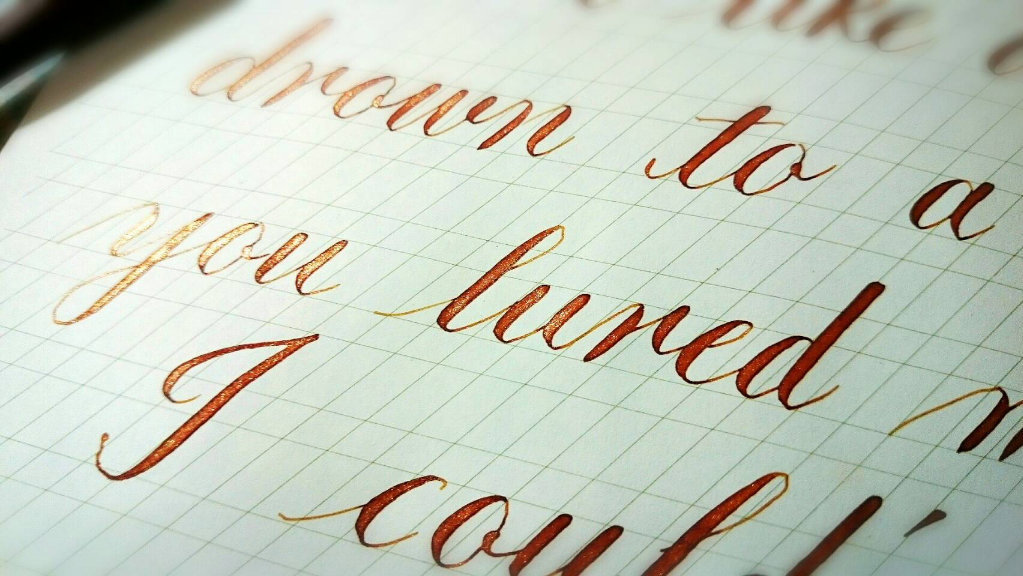 like
drown to a
you lured
I could'